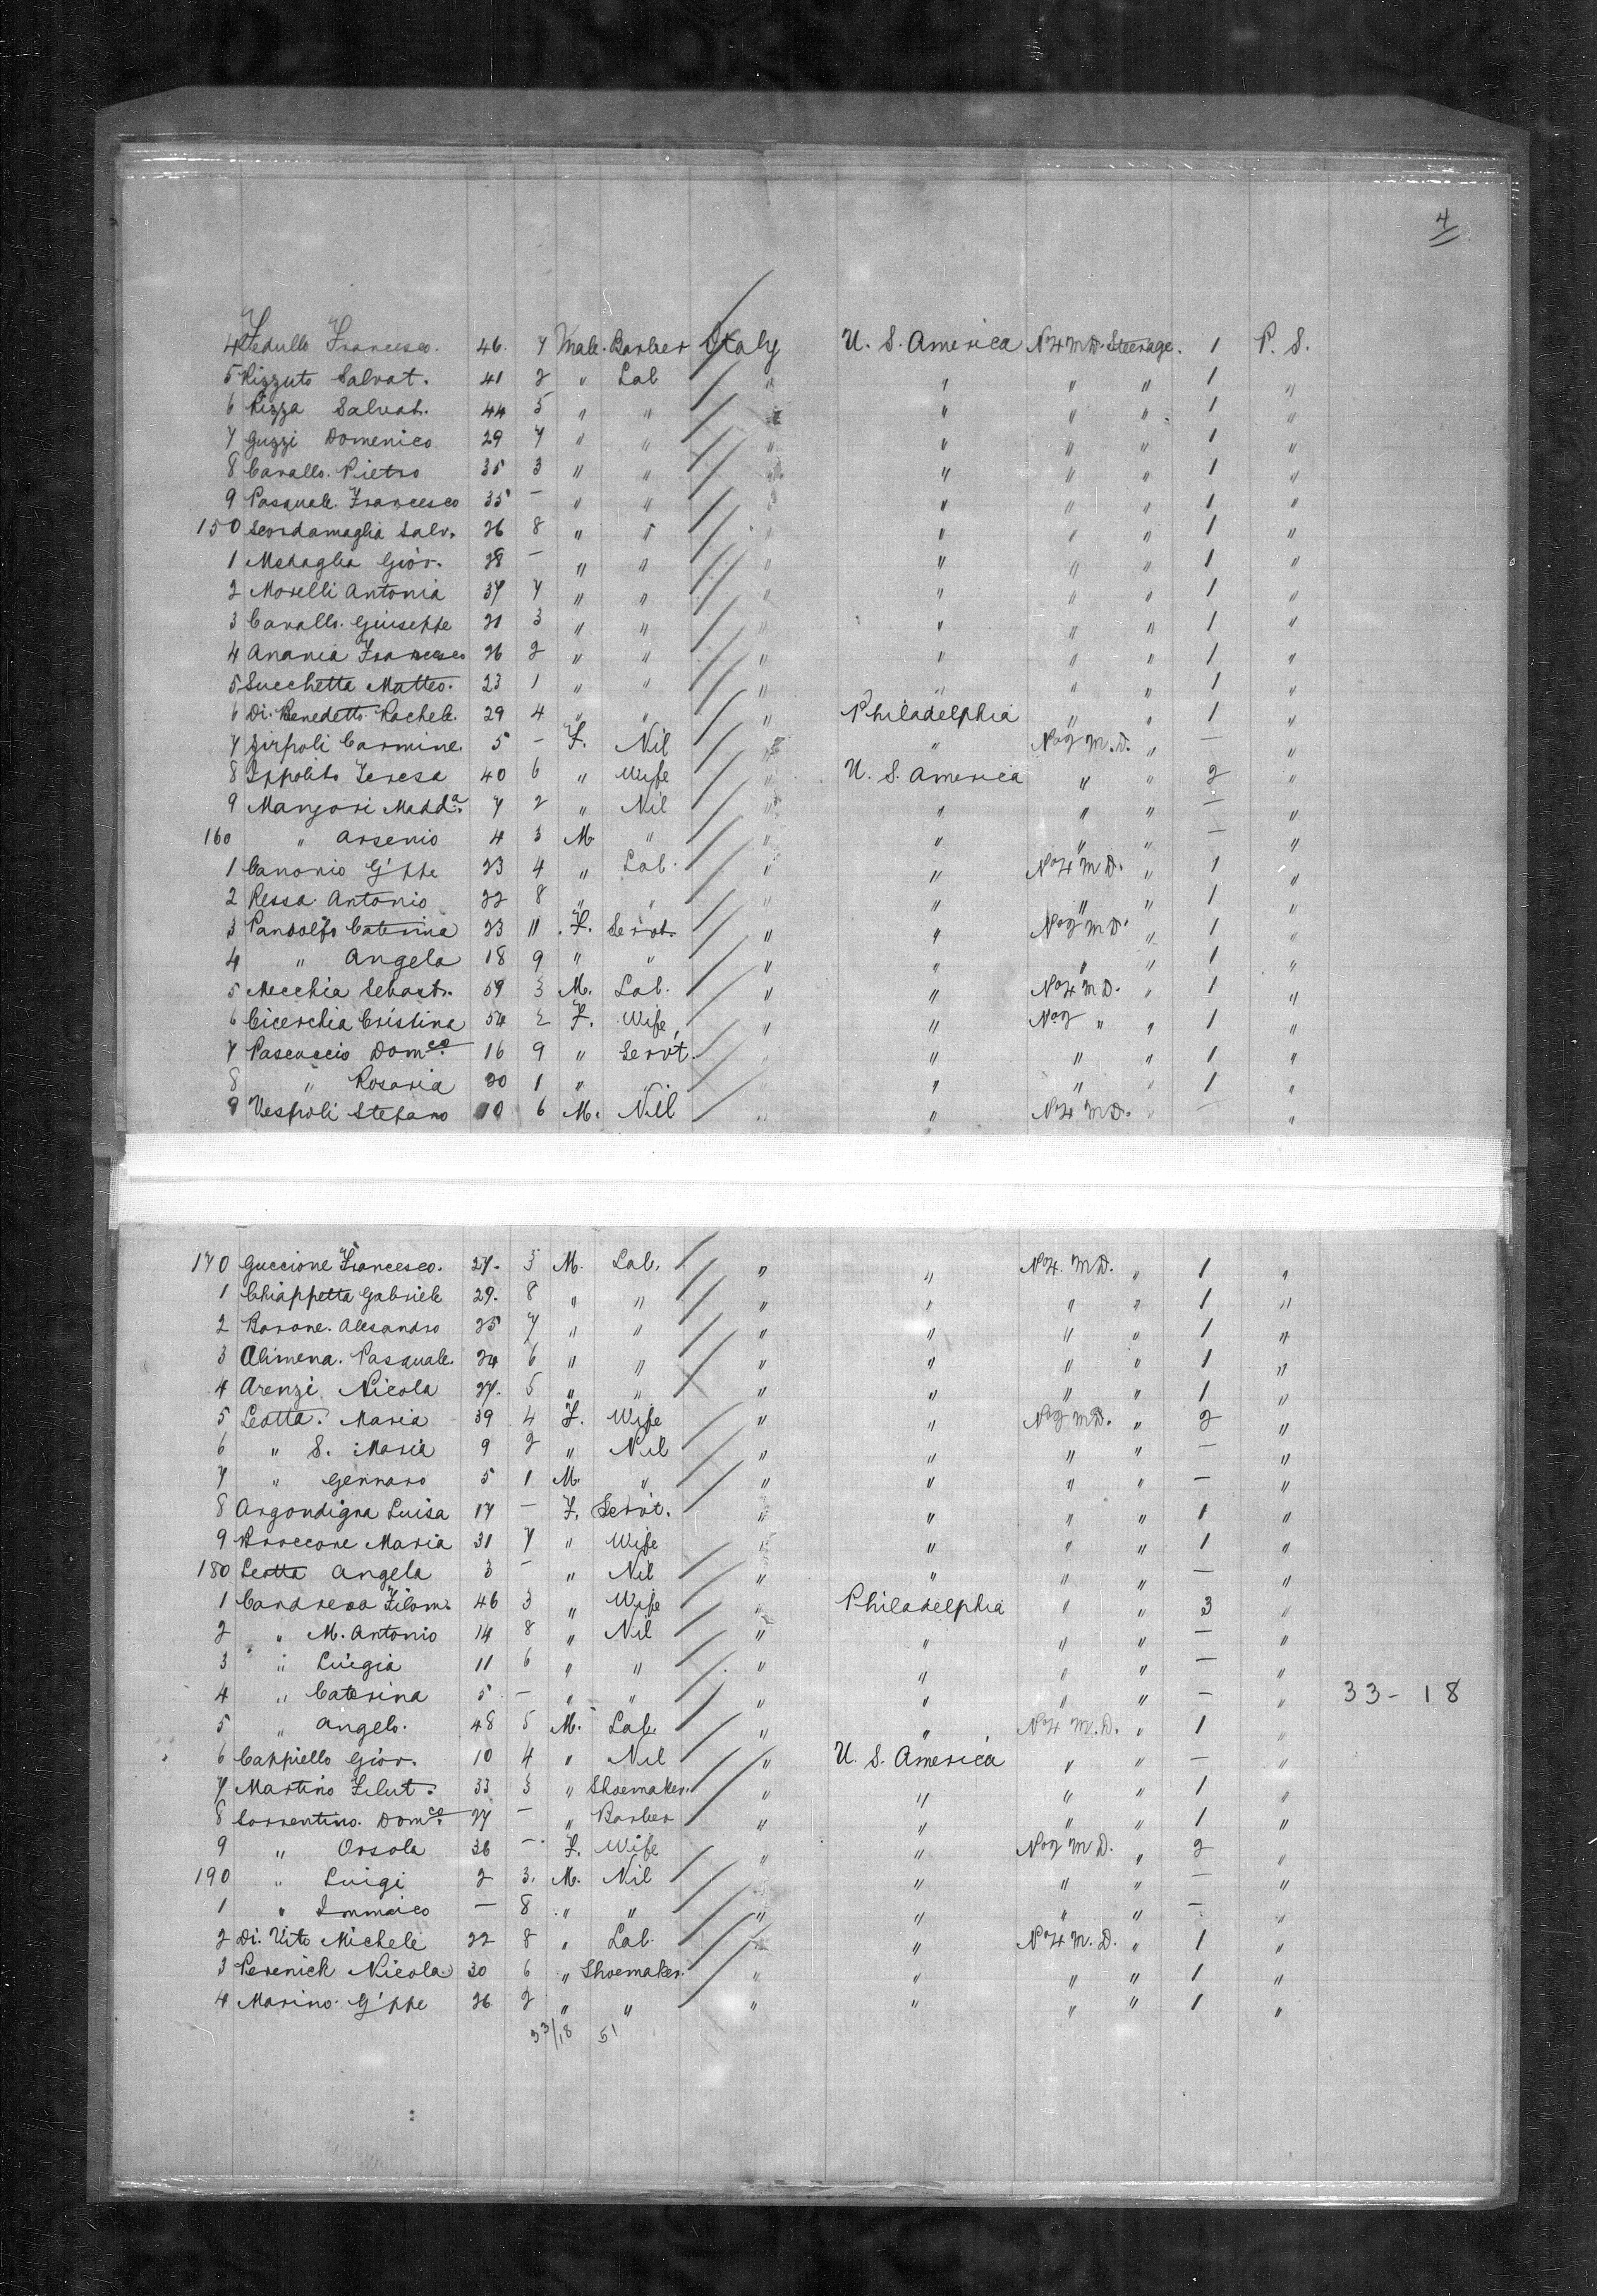 4
4 Fedullo Francesco. 46. 7 Male. Barber Italy U. S. America No 4 M.D. Steerage. 1 P. S.
5 Rizzuto Salvat. 41 2 " Lab " " " " 1 "
6 Rizza Salvat. 44 5 " " " " " " 1 "
7 Guzzi Domenico 29 7 " " " " " " 1 "
8 Cavallo. Pietro 35 3 " " " " " " 1 "
9 Pasquale. Francesco 35 — " " " " " " 1 "
150 Scordamaglia Salv. 26 8 " " " " " " 1 "
1 Medaglia Giov. 28 — " " " " " " 1 "
2 Morelli Antonia 37 7 " " " " " " 1 "
3 Cavallo. Giuseppe 21 3 " " " " " " 1 "
4 Anania Francesco 26 2 " " " " " " 1 "
5 Succhetta Matteo. 23 1 " " " " " " 1 "
6 Di. Benedetto. Rachele. 29 4 " " " Philadelphia " " 1 "
7 Zirpoli Carmine. 5 — F. Nil " " No 2 M.D. " — "
8 Ippolito Teresa 40 6 " Wife " U. S. America " " 2 "
9 Mangori Madda. 7 2 " Nil " " " " — "
160 " Arsenio 4 3 M. " " " " " — "
1 Canonio G'ppe 23 4 " Lab. " " No 4 M D. " 1 "
2 Ressa Antonio 22 8 " " " " " " 1 "
3 Pandolfo Caterina 23 11 F. Servt. " " No 2 M D. " 1 "
4 " Angela 18 9 " " " " " " 1 "
5 Mecchia Sebast. 59 3 M. Lab. " " No 4 M D. " 1 "
6 Cicerchia Cristina 54 2 F. Wife " " No 2 " " 1 "
7 Pascuccio Domca. 16 9 " Servt. " " " " 1 "
8 " Rosaria 20 1 " " " " " " 1 "
9 Vespoli Stefano 10 6 M. Nil " " No 4 M D. " — "
170 Guccione Francesco. 27. 5 M. Lab. " " No 4. M D. " 1 "
1 Chiappetta Gabriele 29. 8 " " " " " " 1 "
2 Barone. Alesandro 25 7 " " " " " " 1 "
3 Alimena. Pasquale. 24 6 " " " " " " 1 "
4 Arenzi Nicola 27. 5 " " " " " " 1 "
5 Leotta. Maria 39 4 F. Wife " " No 2 M D. " 2 "
6 " S. Maria 9 2 " Nil " " " " — "
7 " Gennaro 5 1 M. " " " " " — "
8 Argondigna Luisa 17 — F. Servt. " " " " 1 "
9 Broccone Maria 31 7 " Wife " " " " 1 "
180 Leotta Angela 3 — " Nil " " " " — "
1 Candreva Filom. 46 3 " Wife " Philadelphia " " 3 "
2 " M. Antonio 14 8 " Nil " " " " — "
3 " Luigia 11 6 " " " " " " — "
4 " Caterina 5 — " " " " " " — " 33 - 18
5 " Angelo. 48 5 M. Lab. " " No 4 M.D. " 1 "
6 Cappiello Giov. 10 4 " Nil " U. S. America " " — "
7 Martino Filut. 33 3 " Shoemaker. " " " " 1 "
8 Sorrentino. Domco. 27 — " Barber " " " " 1 "
9 " Orsola 36 — F. Wife " " No 2 M D. " 2 "
190 " Luigi 2 3. M. Nil " " " " — "
1 " — 8 " " " " " " — "
2 Di. Vito Michele 22 8 " Lab. " " No 4 M. D. " 1 "
3 Perenich Nicola 30 6 " Shoemaker. " " " " 1 "
4 Marino. G'ppe 26 2 " " " " " " 1 "
33/18 51